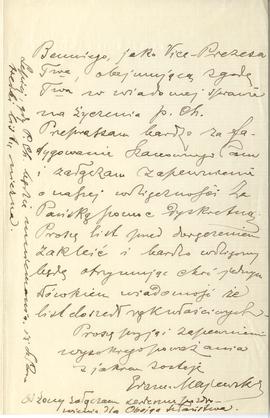 Benniego, jako Vice-Prezesa
Twa, obejmującą zgodę
Twa w wiadomej sprawie
na życzenia p. Ch.
Przepraszam bardzo za fa-
tygowanie Szanownego Pana
i załączam zapewnienie
o naszej wdzięczności za
Pańską pomoc dyskretną.
Proszę list przed doręczeniem
zakleić i bardzo wdzięczny
będę otrzymując choć jednym
słówkiem wiadomość że
list doszedł rąk właściwych.
Proszę przyjąć zapewnienie
wysokiego poważania
z jakiem zostaję
Erazm Majewski
Od żony załączam serdeczne pozdro-
wienia dla Obojga Państwa.
Lepiej, gdy P. Ch. będzie